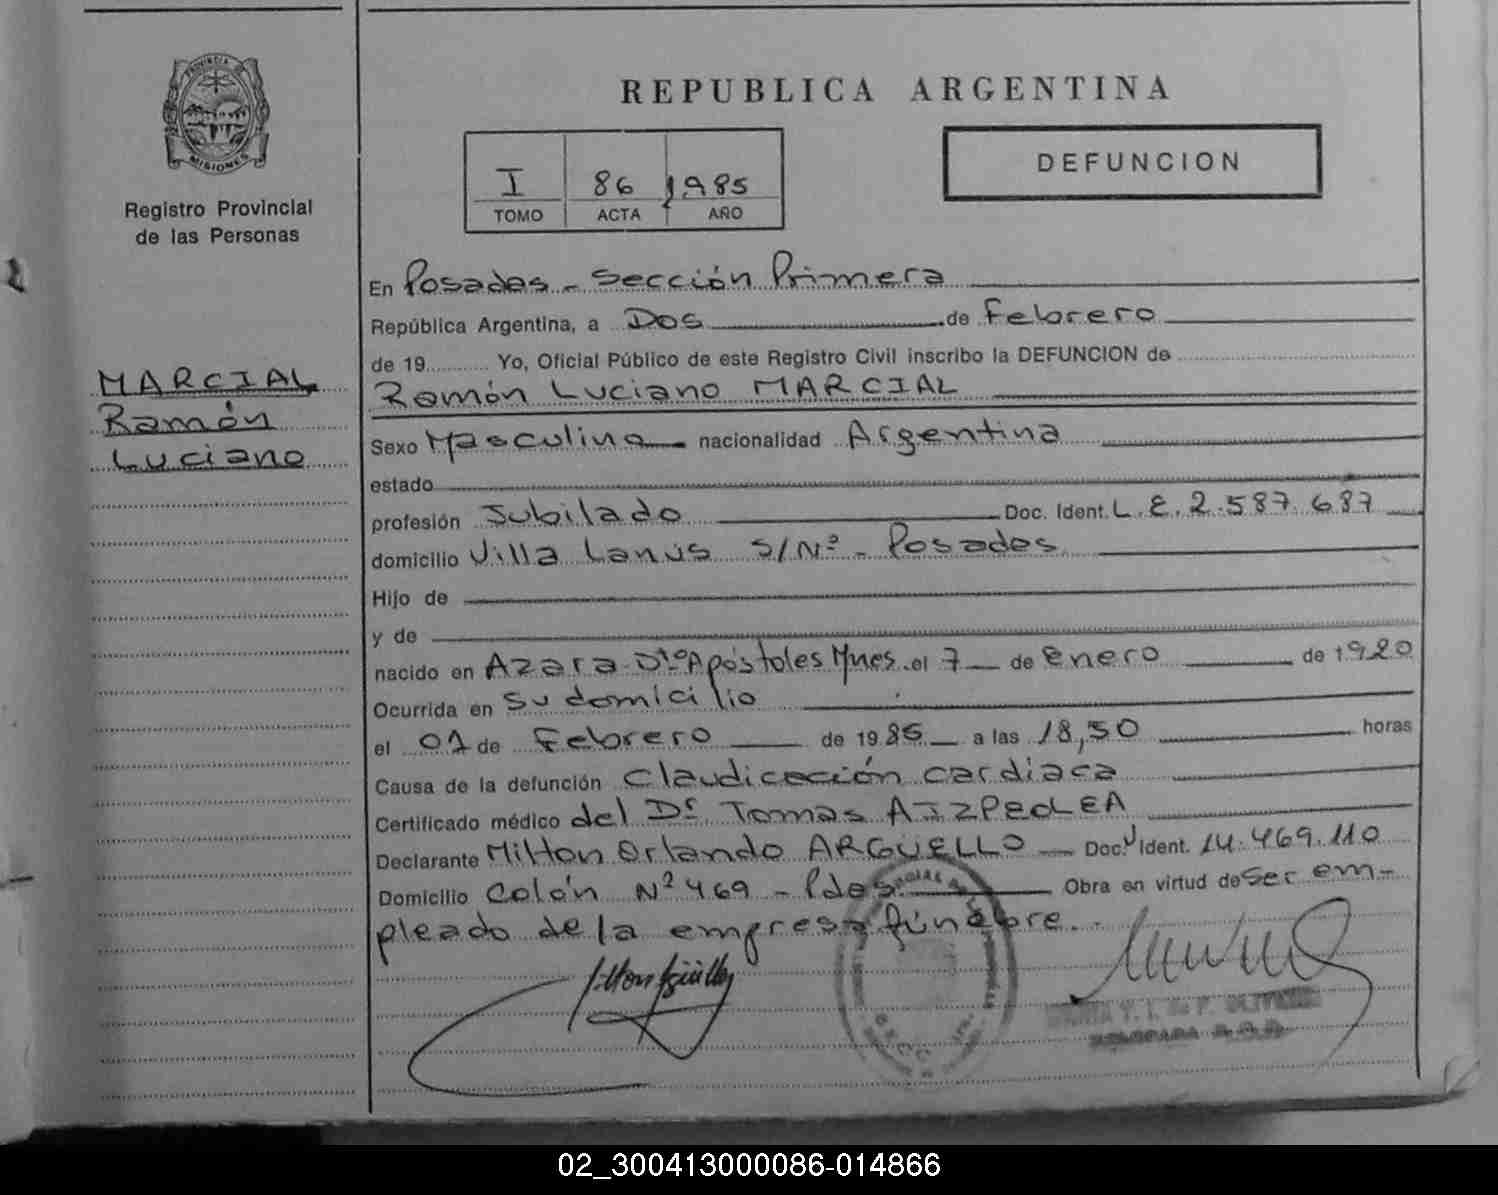 PROVINCIA DE
MISIONES
Registro Provincial
de las Personas
MARCIAL
Ramón
Luciano
REPUBLICA ARGENTINA
I 86 1985
TOMO ACTA AÑO
DEFUNCION
En Posadas - Sección Primera
República Argentina, a Dos de Febrero
de 19 Yo, Oficial Público de este Registro Civil inscribo la DEFUNCION de
Ramón Luciano MARCIAL
Sexo Masculino nacionalidad Argentina
estado
profesión Jubilado Doc. Ident. L.E. 2.587.687
domicilio Villa Lanús S/Nº - Posadas
Hijo de
y de
nacido en Azara Dtº Apóstoles Mnes. el 7 de enero de 1920
Ocurrida en su domicilio
el 01 de Febrero de 1985 a las 18,50 horas
Causa de la defunción Claudicación cardiaca
Certificado médico del Dr. Tomas AIZPEOLEA
Declarante Milton Orlando ARGÜELLO Doc. Ident. 14.469.110
Domicilio Colón Nº 469 - Pdas. Obra en virtud de ser em-
pleado de la empresa fúnebre.-
02_300413000086-014866